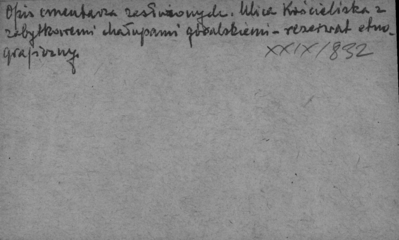 Opis cmentarza zasłużonych. Ulica Kościeliska z
zabytkowemi chałupami góralskiemi – rezerwat etno-
graficzny.
XXIX/832